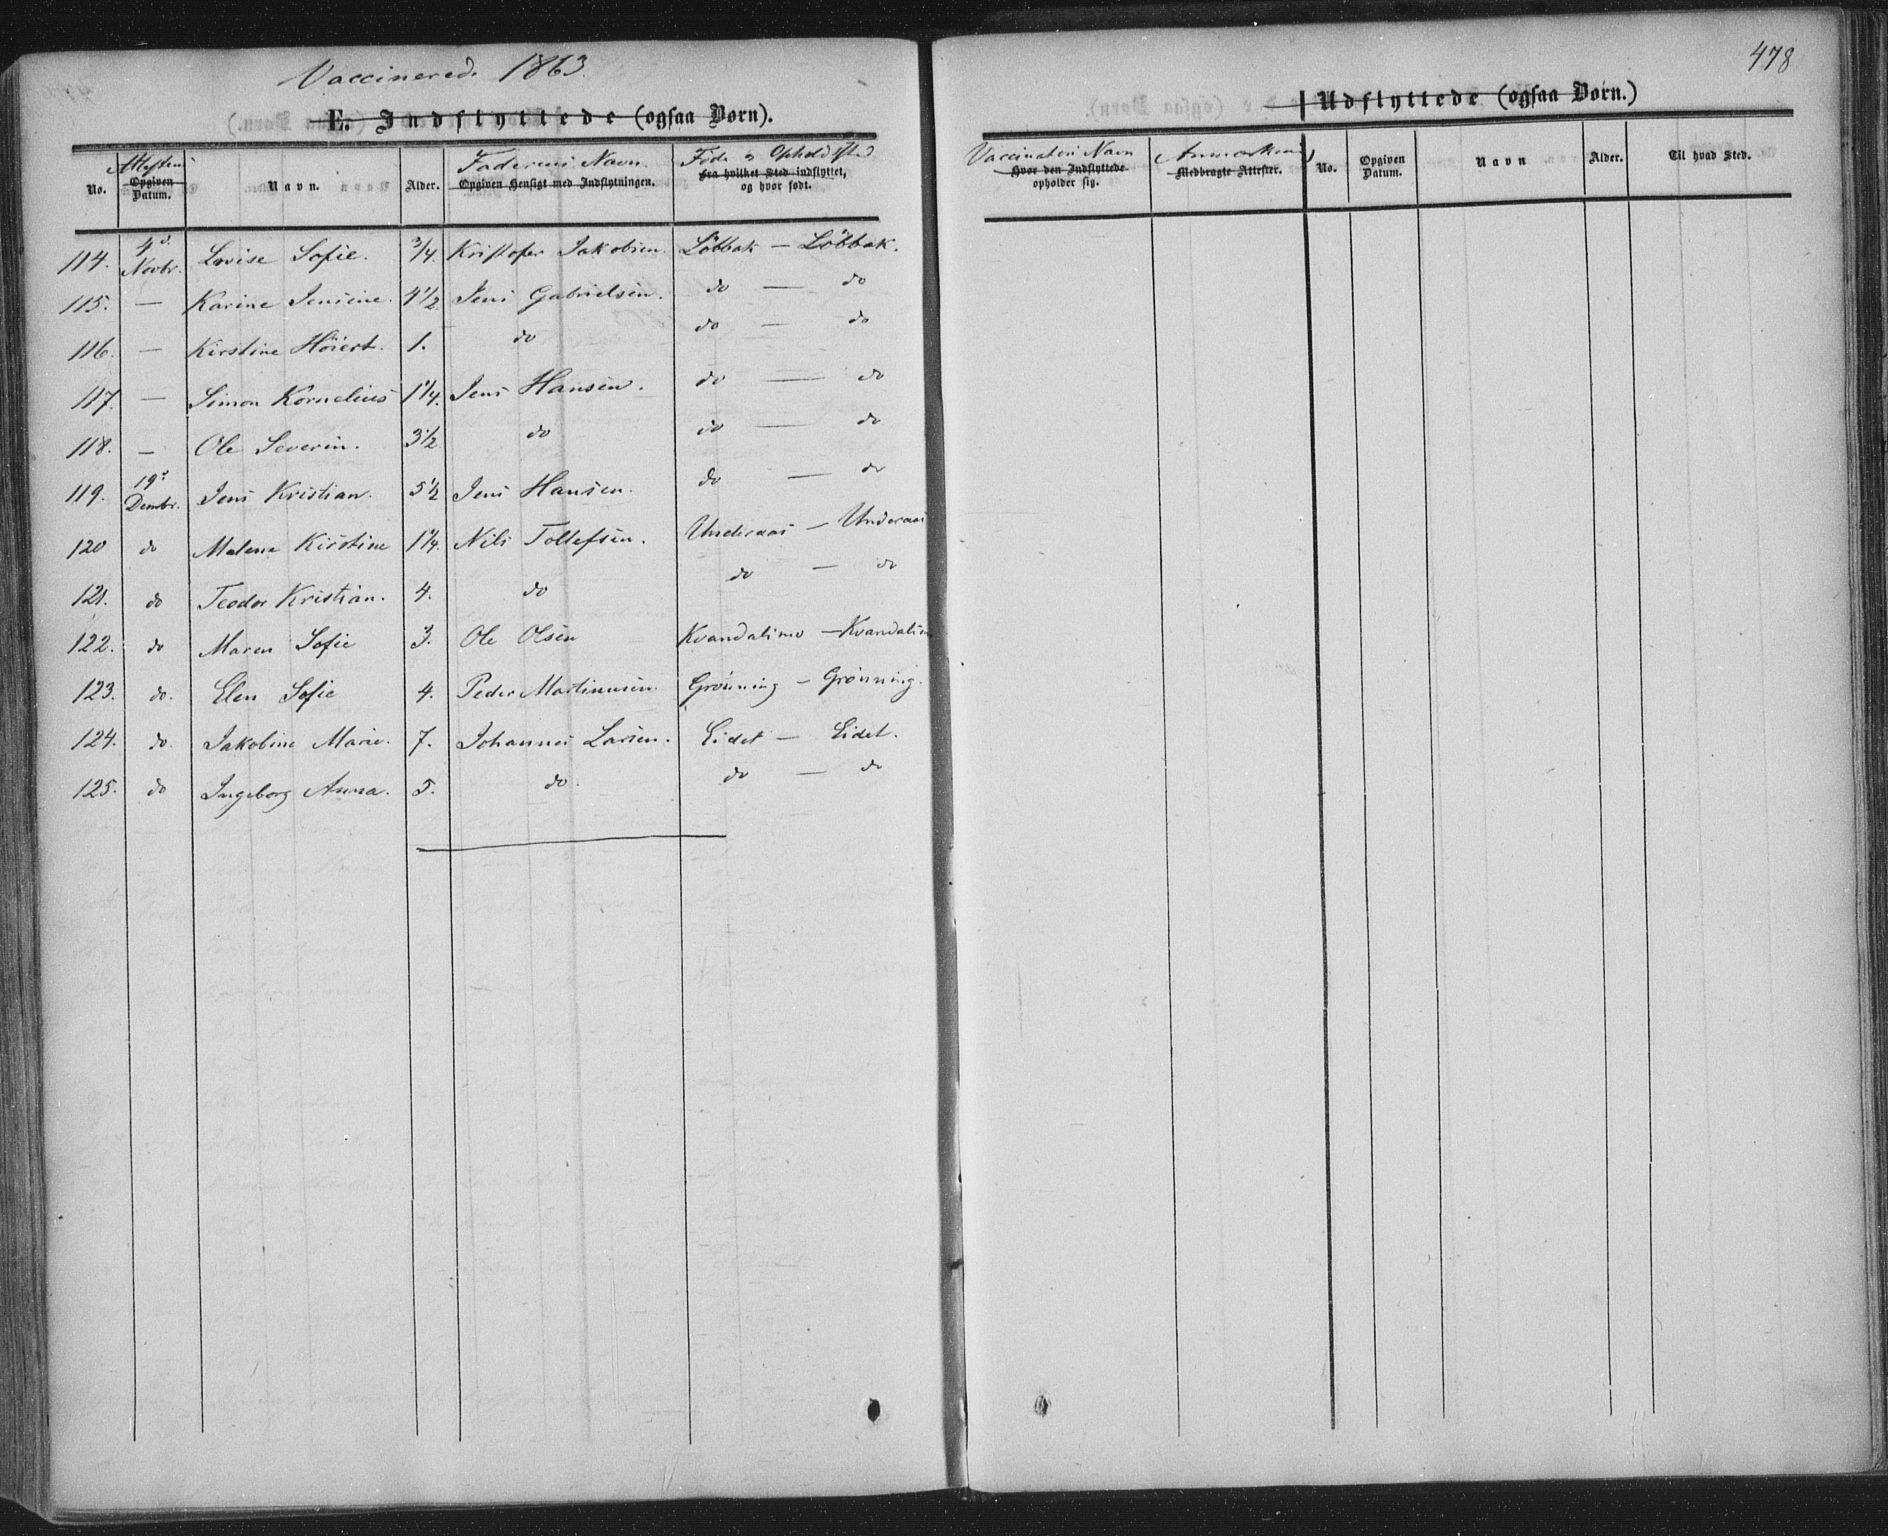 478
Vaccinerede 1863.
E. Indflyttede (ogsaa Børn).
Udflyttede (ogsaa Børn.)
No. Attestens Opgiven Datum. Navn. Alder. Faderens Navn Opgiven Hensigt med Indflytningen. Føde og Opholdssted Fra hvilket Sted indflyttet, og hvor født.
Vaccinatørs Navn Hvor den Indflyttede opholder sig. Anmærkning Medbragte Attester. No. Opgiven Datum. Navn Alder. Til hvad Sted.
114. 4d. Novbr. Lovise Sofie. 3/4. Kristofer Jakobsen. Löbbak — Löbbak.
115. — Karine Jensine. 4 1/2. Jens Gabrielsen. do — do
116. — Kirstine Höiert. 1. do do — do
117. — Simon Kornelius 1 1/4. Jens Hansen. do — do
118. — Ole Severin. 3 1/2 do do — do
119. 19d Dembr. Jens Kristian. 5 1/2 Jens Hansen. do — do
120 do Malene Kirstine 1 1/4. Nils Tollefsen. Underaas — Underaas
121. do Teodor Kristian. 4. do do — do
122. do Maren Sofie 3. Ole Olsen Kvandalimo — Kvandalimo
123. do. Elen Sofie 4. Peder Martinusen. Grönning — Grönning.
124. do. Jakobine Marie. 7. Johannes Larsen. Eidet — Eidet.
125. do Ingeborg Anna. 5. do. do — do